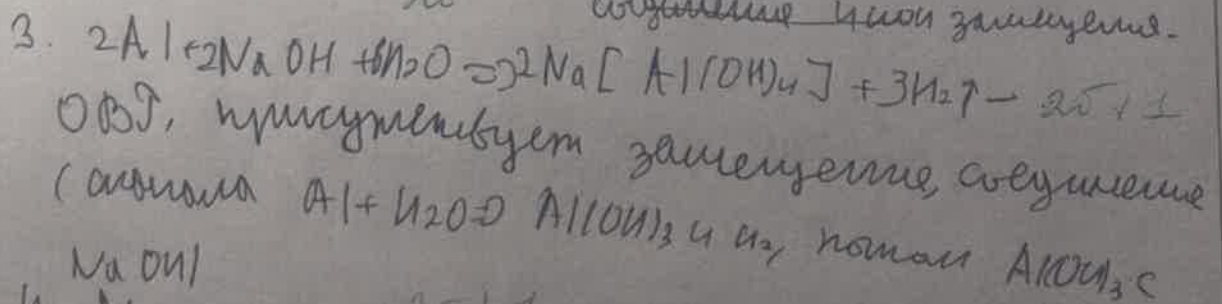 соединение и/или замещения.
3. 2Al+2NaOH+6H2O=>2Na[Al(OH)4]+3H2↑ – 2б + 1
ОВР, присутствует замещение, соединение
(сначала Al+H2O=> Al(OH)3 и H2, потом Al(OH)3 с
NaOH)